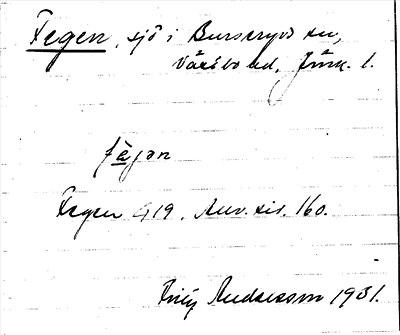 Fegen, sjö i Burseryds sn,
Västbo hd, Jönk. l.
fägən
Fegen G 19. Anv. sid. 160.
Andersson 1931.